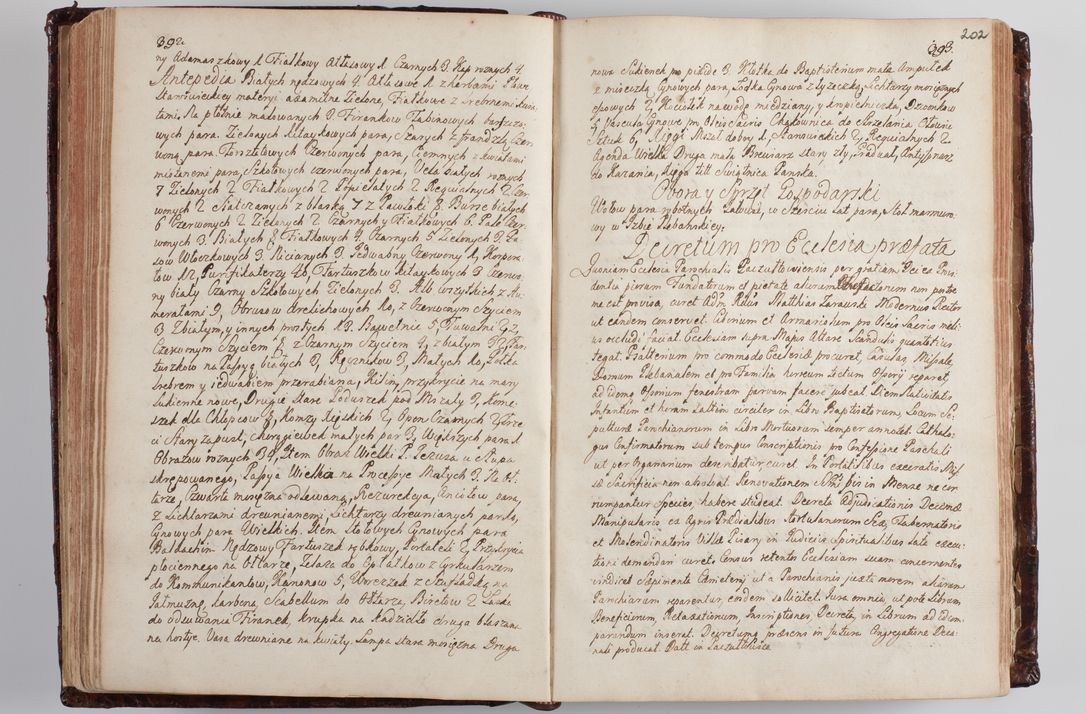 392.
ny Adamaszkowy 1. Fiałkowy Atłasowy 1. Czarnych 3. Kap roznych 4.
Antepedia Białych nędzowych 4. Atłasowe 1. z herbami
Stanisuieckiey materyi adamitne Zielone, Fiałkowe z srebrnemi
tami, Na płotnie malowanych 3. Firankow Tabinowych
wych para. Zielonych Kitaykowych para, Szarych z frandzlą Czer
woną para. Forsztowych Czerwonych para, Ciemnych z kwiatami
mieniemi para, Szkotowych czerwonych para, Vela białych roznych
7 Zielonych 2 Fiałkowych 2 Popielatych 2 Requialnych 2 Czer
wonych 2 Kalczanych z blaszką 7 z Pawłoki 8 Burse białych
6 Czerwonych 2 Zielonych 2 Czarnych y Fiałkowych 6. Palk Czer
wonych 3. Białych 8 Fiałkowych 4 Czarnych 5 Zielonych 3. Pa
sow Włoczkowych 3 Nicianych 3. Jedwabny Czerwony 1, Korpora
łow 12, Purifikaterzy 46, Fartuszkow Kitaykowych 3 Czerwo
ny biały Czarny Szkotowych Zielonych 3. Alb wszystkich z Hu
merałami 9, Obrusow drelichowych 10, z Czerwonym szyciem
3 Zbiałym, y innych prostych 18. Bawełnic 5 Tuwalni 92,
Czerwonym Szyciem 8 z Czarnym Szyciem 4, z białym 3 Far
tuszkow na Lapsę białych 3, Ręcznikow 3, Małych 10,
Srebrem y jedwabiem przerabiana, Kilim, przykrycie na mary
Sukienne nowe, Drugie stare Poduszek pod Mszały 9, Kome
szek dla Chłopcow 8, Komży Xięskich 2, Open Czarnych 2 Trze
ci Stary zapust, Chorągiewek małych par 3, Większych para 1.
Obrazow roznych 34, Item Obraz Wielki P. Jezusa u Słupa
skrępowanego, Passya Wielkia na Processye Małych 3. Na Oł
tarze, Czwarta mosiężna odlewana, Rezurekcya, Aniołow para,
z Lichtarzami drewnianemi Lichtarzy drewnianych par 10,
Cynowych para Wielkich. Item Stołowych Cynowych para
Baldachin Nędzowy Fartuszek rybkowy, Portatela 2 Przykrycia
płociennego na Ołtarze, Zelaza do Opłatkow z Cyrkularzem
do Kommunikantow, Kanonow 5, Woreczek z Szufladką na
Jałmużnę, Karbona, Scabellum do Ołtarza, Biretow 2 Laska
do odsuwania Firanek, Krupka na Kadzidło druga blaszana
na hostye. Vasa drewniane na kwiaty. Lampa stara mosiężna Druga
202
393.
nowa Sukienek po pixide 3. Kłotka do Baptisterium mała Ampułek
z miseczką Cynowych para, Łodka Cynowa z Łyzeczką, Lichtarzy mosiężnych
cępowych 2, Kociołek na wodę miedziany, y Ampielniczka, Dzwonkow
5, Vascula Cynowe pro Oleis Sacris, Chąkownica do strzelania Ołowiu
Sztuk 6, Xięgi Mszał dobry 1, Stanowieckich 2, Requialnych 2.
Agenda Wielka Druga mała Breviarz stary zły Gradual, Antyfonarz
do Kazania, Xięga Titt Swiątnica Panska.
Obora y Sprzęt Gospodarski
Wołow para robotnych Pałuck, w Szesciu Lat para, Stoł marmuro,
wy w Izbie Plebanskiey:
Decretum pro Ecclesia præfata
Quoniam Ecclesia Parochialis Paczułtowiensis per gratiam Dei ex Provi
dentia piarum Fundatorum et pietate aliorum Benefactorum non postre
me est provisa, curet Adm Rdus Matthias Zarawski Modernus Rector
ut eandem conservet. Ciborium et Armariolum pro Oleis Sacris meli
us occludi faciat. Ecclesiam supra Majus Altare Scandulis quantitius
tegat. Psalterium pro commodo Ecclesiæ procuret, Casulas, Missale
Domum Plebanalem et pro Familia horreum tectum Ovorij reparet,
ad idem Ovorium fenestram parvam facere jubeat. Diem nativitatis
Infantium et horam saltim circiter in Libro Baptisatorum, Locum Se-
pulturæ Parochianorum in Libro Mortuorum semper annotet. Cathalo-
gus Confirmatorum sub tempus Conscriptionis pro Confessione Paschali
ut per Organarium describatur, curet. In Portatilibus execratis Mis-
sæ Sacrificia non absolvat. Renovationem SSmi bis in Mense ne cor
rumpantur Species, habere studeat. Decreta Adjudicationis Decimæ
Manipularis ex Agris Prædialibus Hortulanorum Stæ, Tabernatoris
et Molendinatoris Villæ Pisary in Judicijs Spiritualibus lata execu-
tioni demandari curet, Census retentos Ecclesiam suam concernentes
vindicet Sæpimenta Cæmeterij ut a Parochianis juxta morem aliarum
Parochiarum reparentur, eosdem sollicitet. Jura omnia, ut pote Librum
Beneficiorum, Relaxationum, Inscriptiones, Decreta, in Librum ad id com-
parandum inserat. Decretumq præsens in futura Congregatione Deca-
nali producat. Datt in Paczułtowice